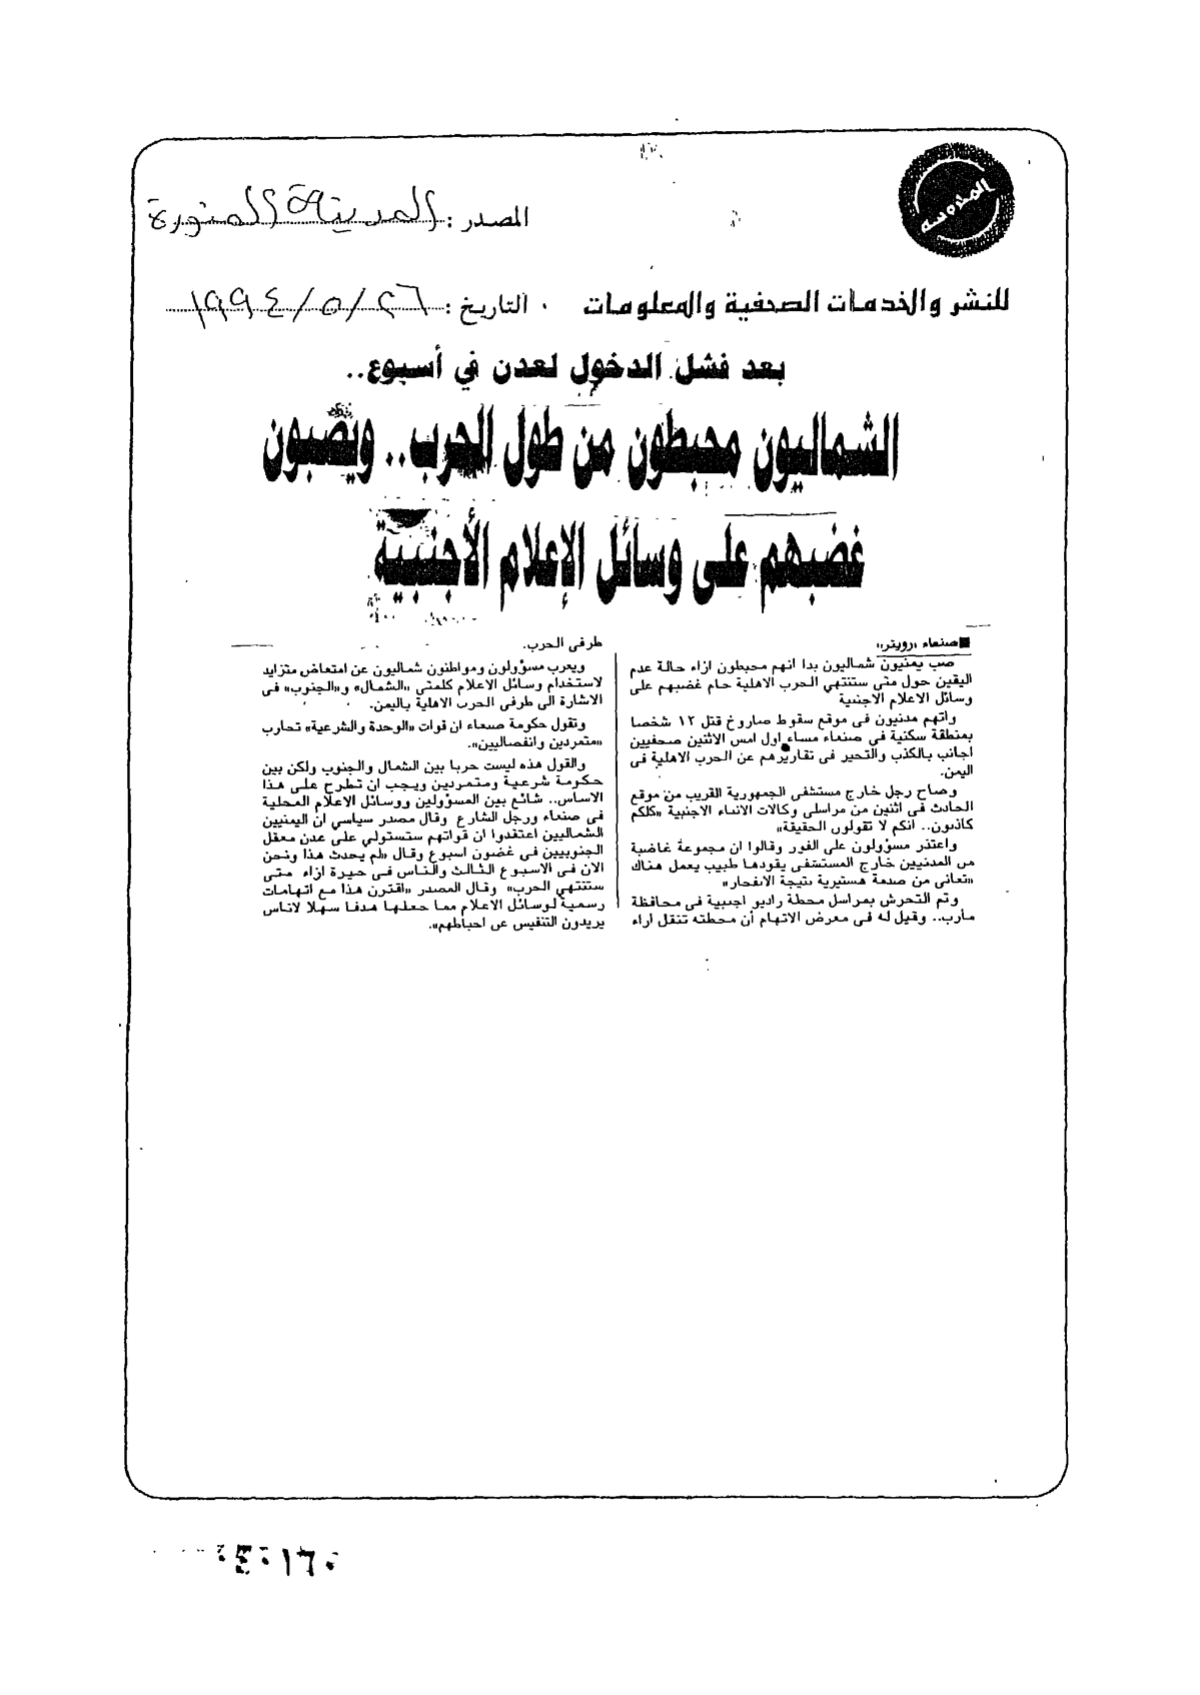 المصدر : المدينة المنورة
للنشر والخدمات الصحفية والمعلومات
التاريخ : ٢٦ / ٥ / ١٩٩٤
بعد فشل الدخول لعدن في أسبوع..
الشماليون محبطون من طول الحرب.. ويصبون
غضبهم على وسائل الإعلام الأجنبية
■ صنعاء «رويتر»
صب يمنيون شماليون بدا انهم محبطون ازاء حالة عدم
اليقين حول متى ستنتهي الحرب الاهلية جام غضبهم على
وسائل الاعلام الاجنبية
واتهم مدنيون فى موقع سقوط صاروخ قتل ١٢ شخصا
بمنطقة سكنية فى صنعاء مساء اول امس الاثنين صحفيين
اجانب بالكذب والتحيز فى تقاريرهم عن الحرب الاهلية فى
اليمن.
وصاح رجل خارج مستشفى الجمهورية القريب من موقع
الحادث فى اثنين من مراسلى وكالات الانباء الاجنبية «كلكم
كاذبون.. انكم لا تقولون الحقيقة»
واعتذر مسؤولون على الفور وقالوا ان مجموعة غاضبة
من المدنيين خارج المستشفى يقودها طبيب يعمل هناك
«تعانى من صدمة هستيرية نتيجة الانفجار»
وتم التحرش بمراسل محطة راديو اجنبية فى محافظة
مأرب.. وقيل له فى معرض الاتهام أن محطته تنقل اراء
طرفى الحرب.
ويعرب مسؤولون ومواطنون شماليون عن امتعاض متزايد
لاستخدام وسائل الاعلام كلمتى «الشمال» و«الجنوب» فى
الاشارة الى طرفى الحرب الاهلية باليمن.
وتقول حكومة صنعاء ان قوات «الوحدة والشرعية» تحارب
«متمردين وانفصاليين».
والقول هذه ليست حربا بين الشمال والجنوب ولكن بين
حكومة شرعية ومتمردين ويجب ان تطرح على هذا
الاساس.. شائع بين المسؤولين ووسائل الاعلام المحلية
فى صنعاء ورجل الشارع وقال مصدر سياسي ان اليمنيين
الشماليين اعتقدوا ان قواتهم ستستولي على عدن معقل
الجنوبيين فى غضون اسبوع وقال «لم يحدث هذا ونحن
الان فى الاسبوع الثالث والناس فى حيرة ازاء متى
ستنتهي الحرب» وقال المصدر «اقترن هذا مع اتهامات
رسمية لوسائل الاعلام مما جعلها هدفا سهلا لاناس
يريدون التنفيس عن احباطهم».